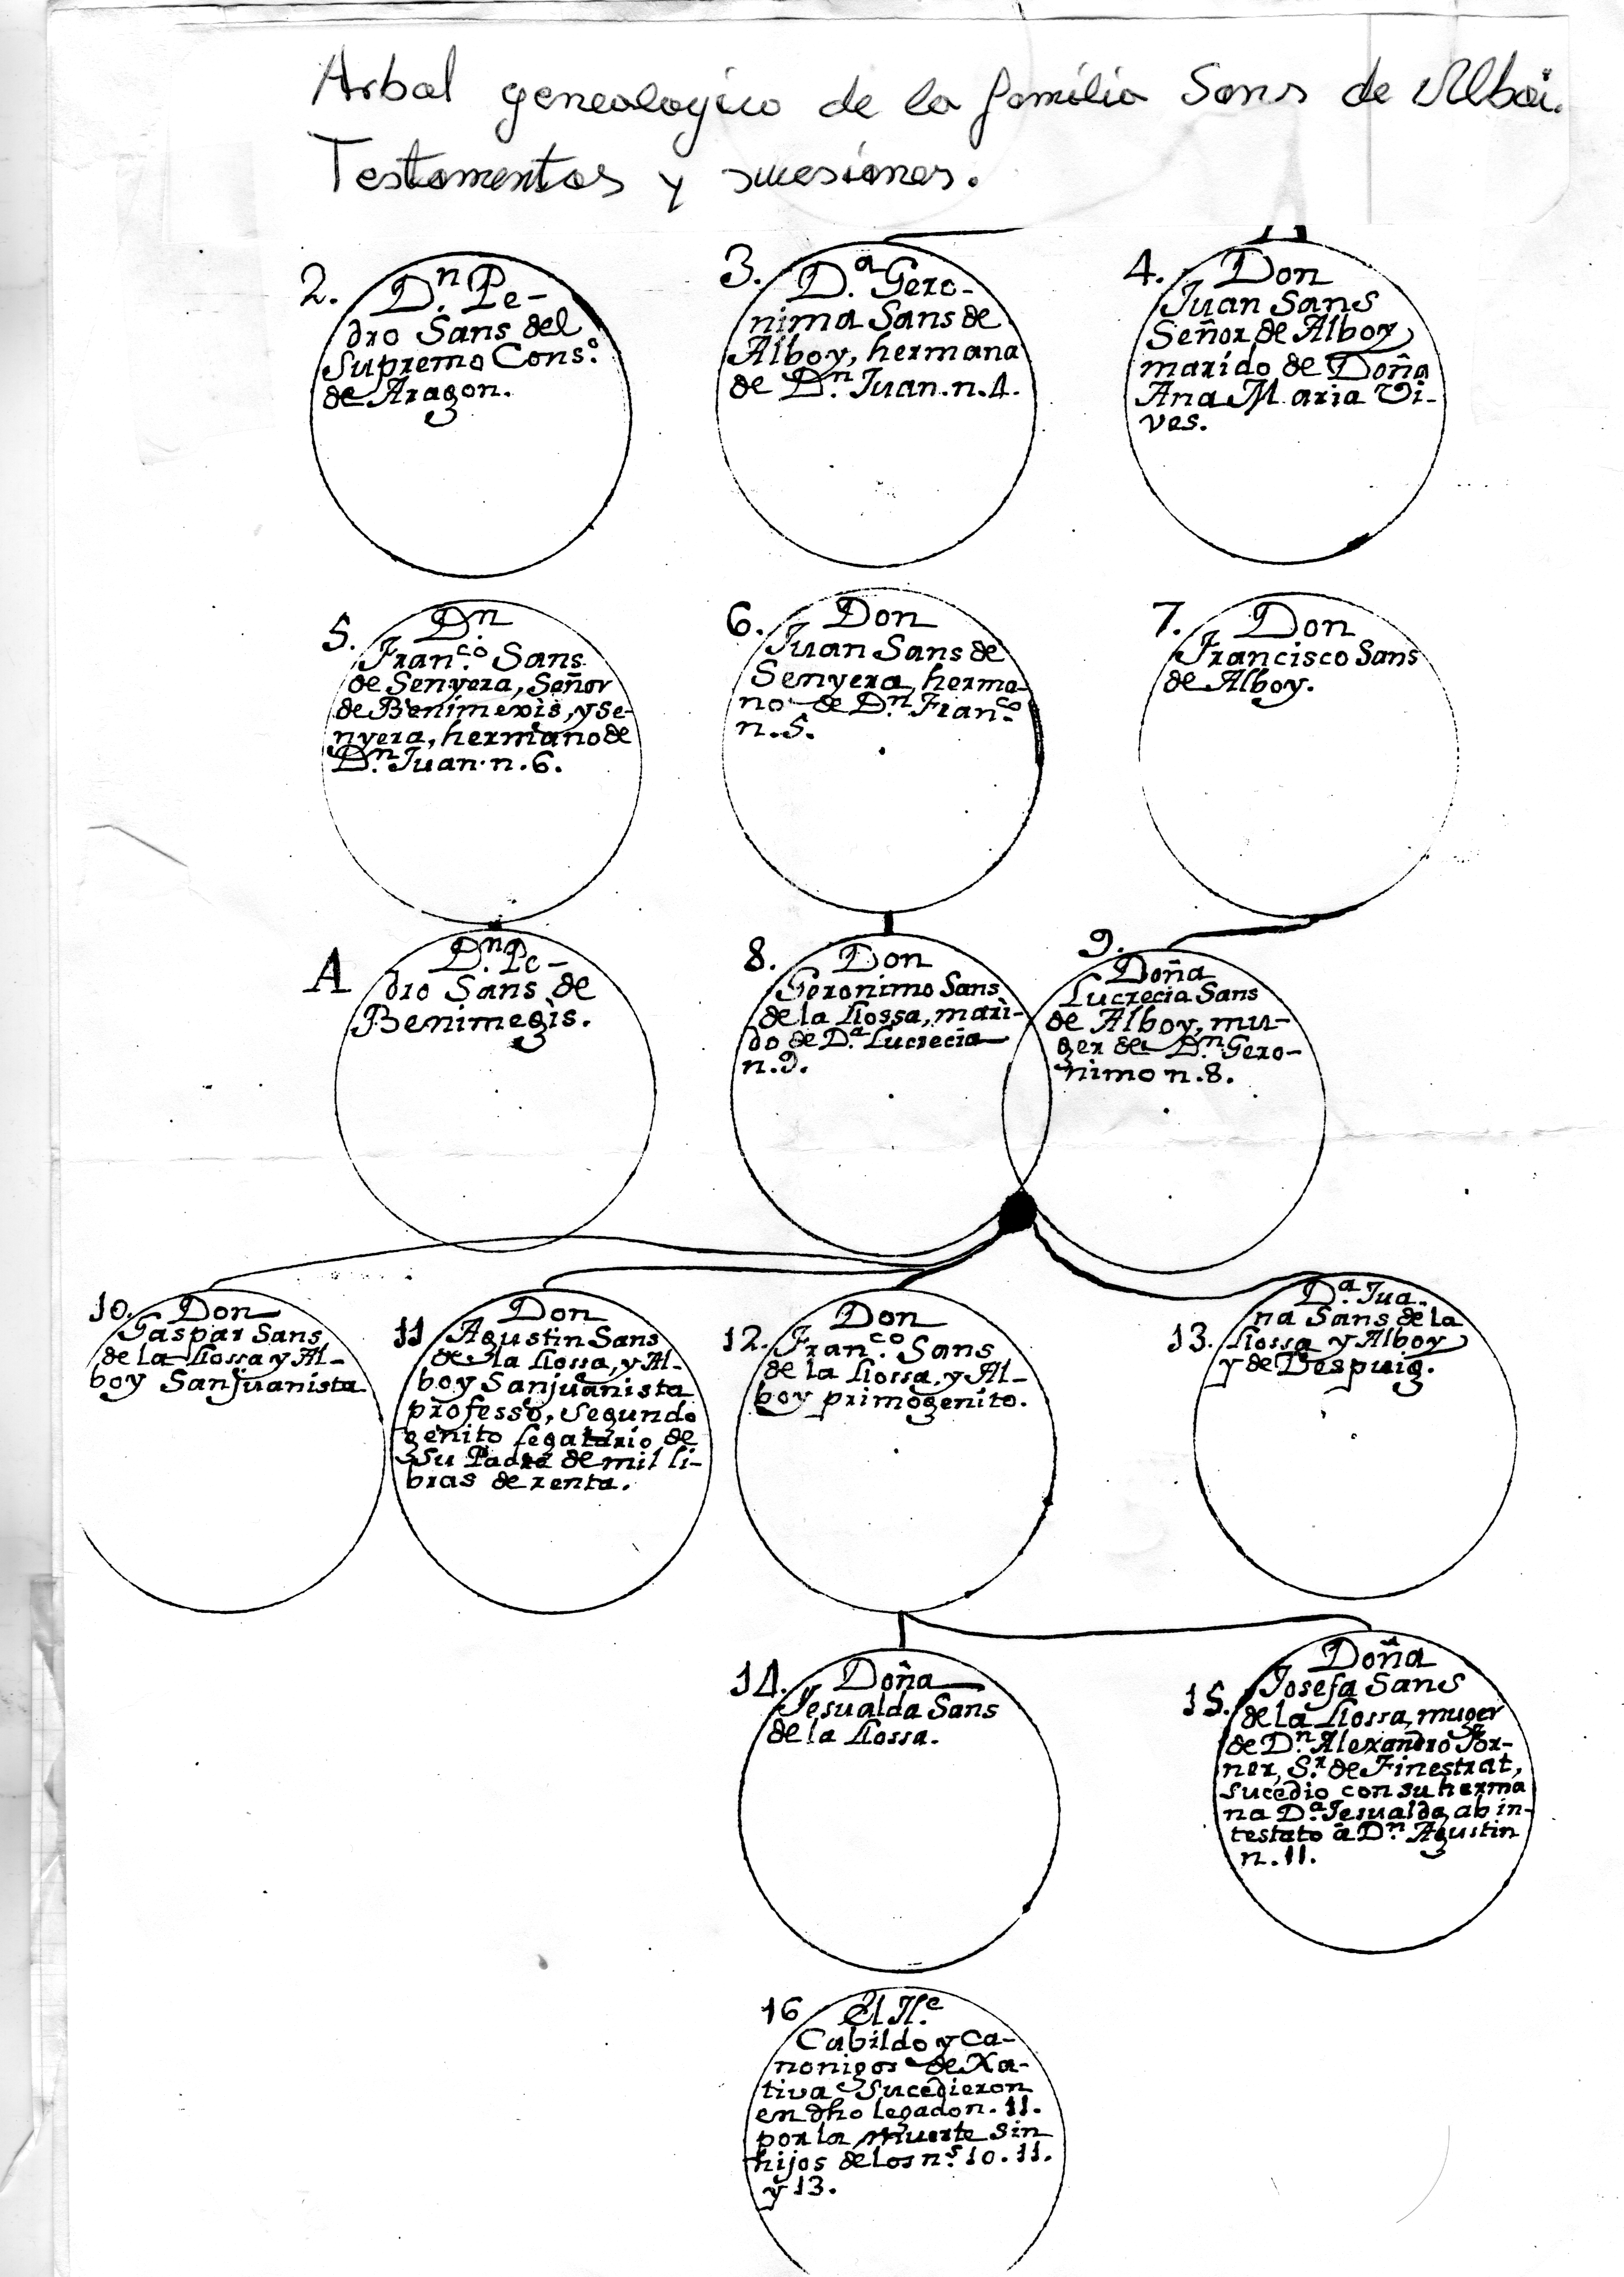 Arbal genealogico de la familia Sans de Alboi.
Testamentos y sucesiones.
2.
D.n Pe-
dro Sans del
Supremo Cons.o
de Aragon.
3.
D.a Gero-
nima Sans de
Alboy, hermana
de D.n Juan. n. 4.
4.
Don
Juan Sans
Señor de Alboy
marido de Doña
Ana Maria Vi-
ves.
5.
D.n
Fran.co Sans
de Senyera, Señor
de Benimexis, y Se-
nyera, hermano de
D.n Juan. n. 6.
6.
Don
Juan Sans de
Senyera, herma-
no de D.n Fran.co
n. 5.
7.
Don
Francisco Sans
de Alboy.
A
D.n Pe-
dro Sans de
Benimegis.
8.
Don
Geronimo Sans
de la Llossa, mari-
do de D.a Lucrecia
n. 9.
9.
Doña
Lucrecia Sans
de Alboy, mu-
ger de D.n Gero-
nimo n. 8.
10.
Don
Gaspar Sans
de la Llossa y Al-
boy Sanjuanista
11
Don
Agustin Sans
de la Llossa, y Al-
boy Sanjuanista
professo, segundo
genito legatario de
su Padre de mil li-
bras de renta.
12.
Don
Fran.co Sans
de la Llossa, y Al-
boy primogenito.
13.
D.a Jua-
na Sans de la
Llossa y Alboy
y de Despuig.
14.
Doña
Jesualda Sans
de la Llossa.
15.
Doña
Josefa Sans
de la Llossa, muger
de D.n Alexandro For-
ner, S.r de Finestrat,
sucedio con su herma
na D.a Jesualda, ab in-
testato à D.n Agustin
n. 11.
16
El Il.e
Cabildo y Ca-
nonigos de Xa-
tiva Sucedieron
en dho legado n. 11.
por la muerte sin
hijos de los n.s 10. 11.
y 13.